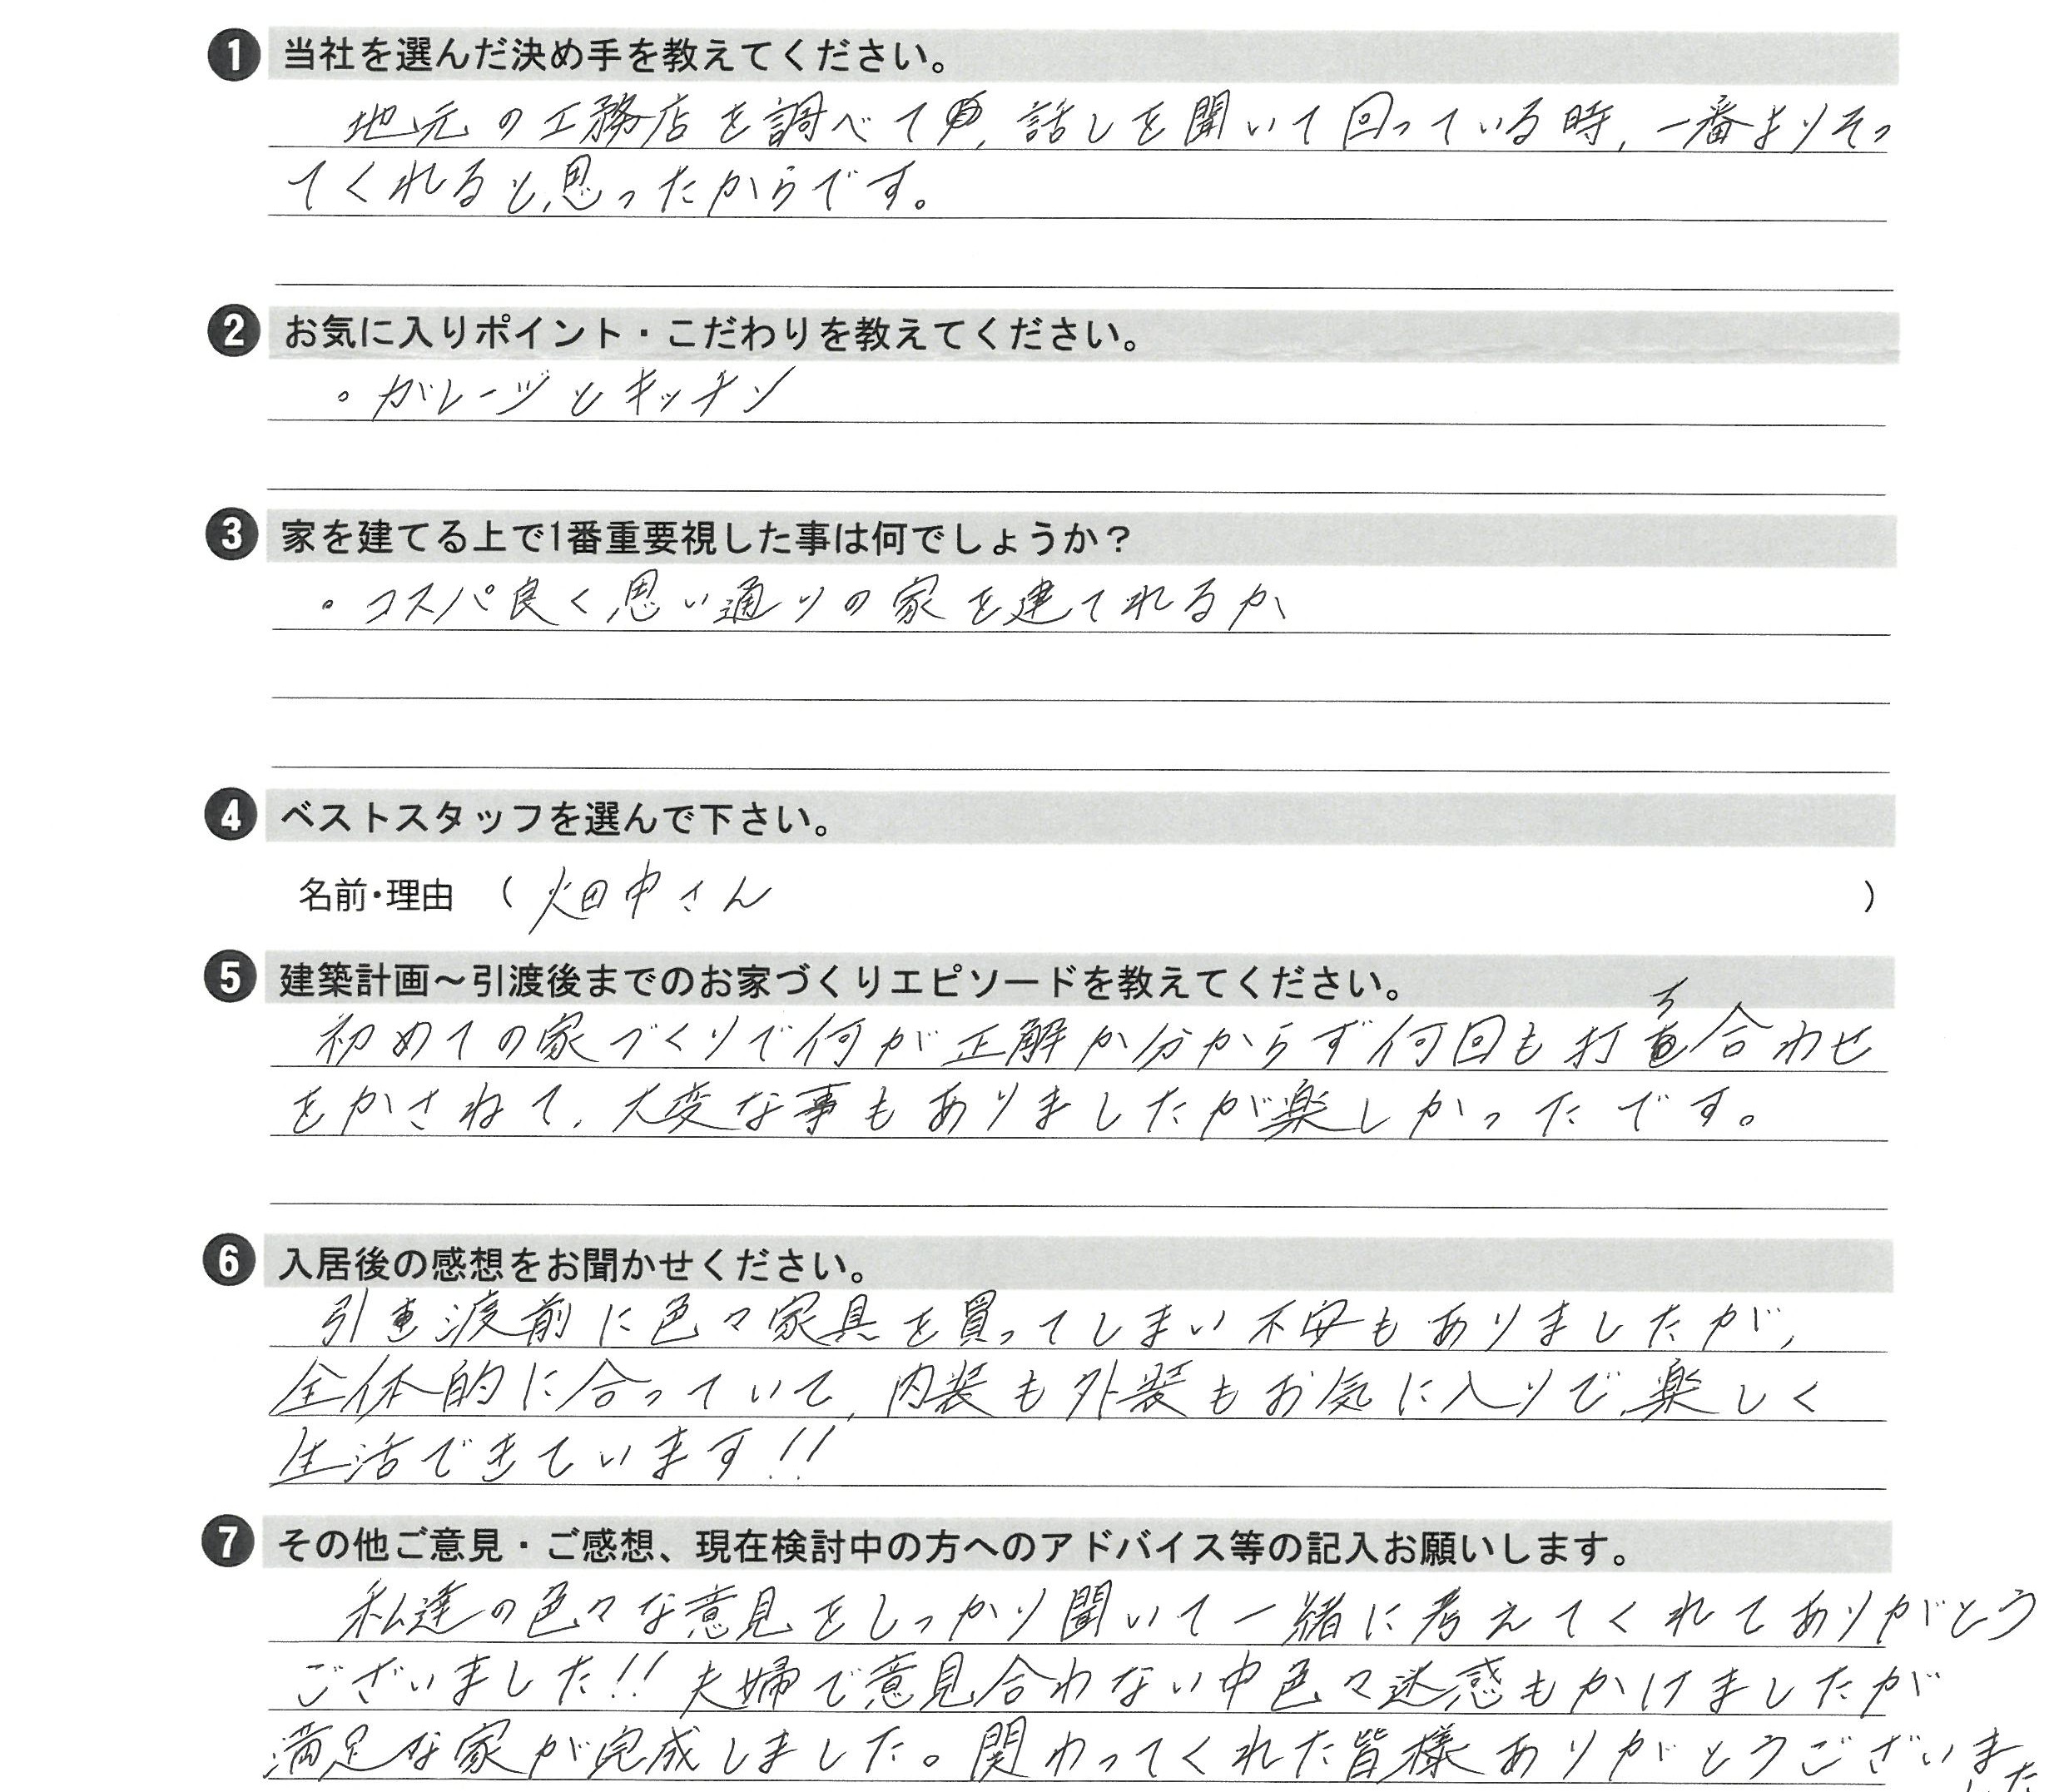 1 当社を選んだ決め手を教えてください。
地元の工務店を調べて、話しを聞いて回っている時、一番よりそっ
てくれると思ったからです。
2 お気に入りポイント・こだわりを教えてください。
・ガレージとキッチン
3 家を建てる上で1番重要視した事は何でしょうか？
・コスパ良く思い通りの家を建てれるか
4 ベストスタッフを選んで下さい。
名前・理由 （ 畑中さん ）
5 建築計画～引渡後までのお家づくりエピソードを教えてください。
初めての家づくりで何が正解か分からず何回も打ち合わせ
をかさねて、大変な事もありましたが楽しかったです。
6 入居後の感想をお聞かせください。
引渡前に色々家具を買ってしまい不安もありましたが、
全体的に合っていて、内装も外装もお気に入りで、楽しく
生活できています!!
7 その他ご意見・ご感想、現在検討中の方へのアドバイス等の記入お願いします。
私達の色々な意見をしっかり聞いて一緒に考えてくれてありがとう
ございました!! 夫婦で意見合わない中色々迷惑もかけましたが
満足な家が完成しました。関わってくれた皆様ありがとうございま
した